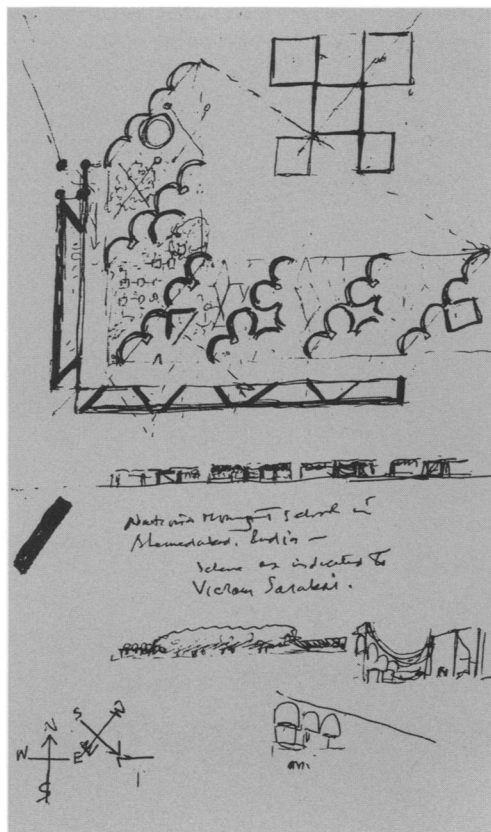 National Managmt School in
Ahmedabad. India —
Scheme as indicated to
Vicram Sarabai.
N
W E
S
S
N